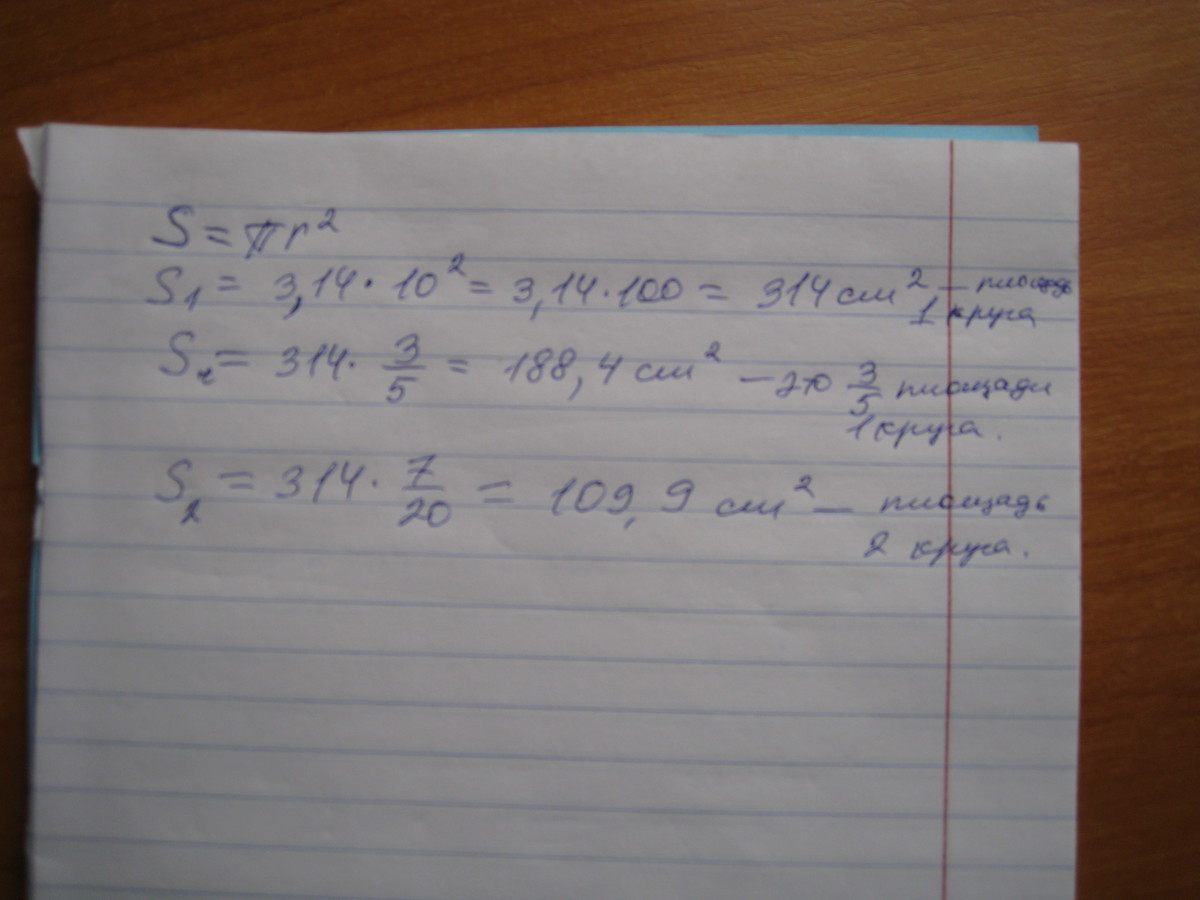 S = πr²
S₁ = 3,14 · 10² = 3,14 · 100 = 314 см² — площадь
1 круга
S₂ = 314 · 3/5 = 188,4 см² — это 3/5 площади
1 круга.
S₂ = 314 · 7/20 = 109,9 см² — площадь
2 круга.